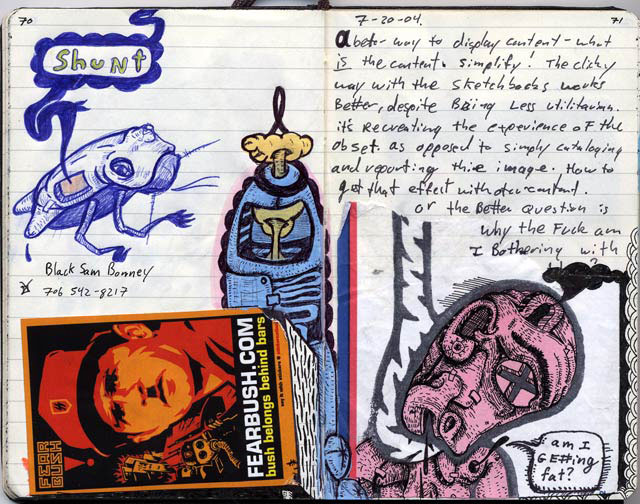 70
Shunt
Black Sam Bonney
706 542-8217
FEARBUSH.COM
bush belongs behind bars
FEAR
BUSH
7-20-04.
71
A beter way to display content - what
is the content. Simplify! The clicky
way with the sketchbooks works
Better, despite Being Less utilitarian.
it's Recreating the experience of the
object. as opposed to simply cataloging
and reporting the image. How to
get that effect with other content.
or the Better question is
Why the Fuck am
I Bothering with
am I
GETTing
fat?